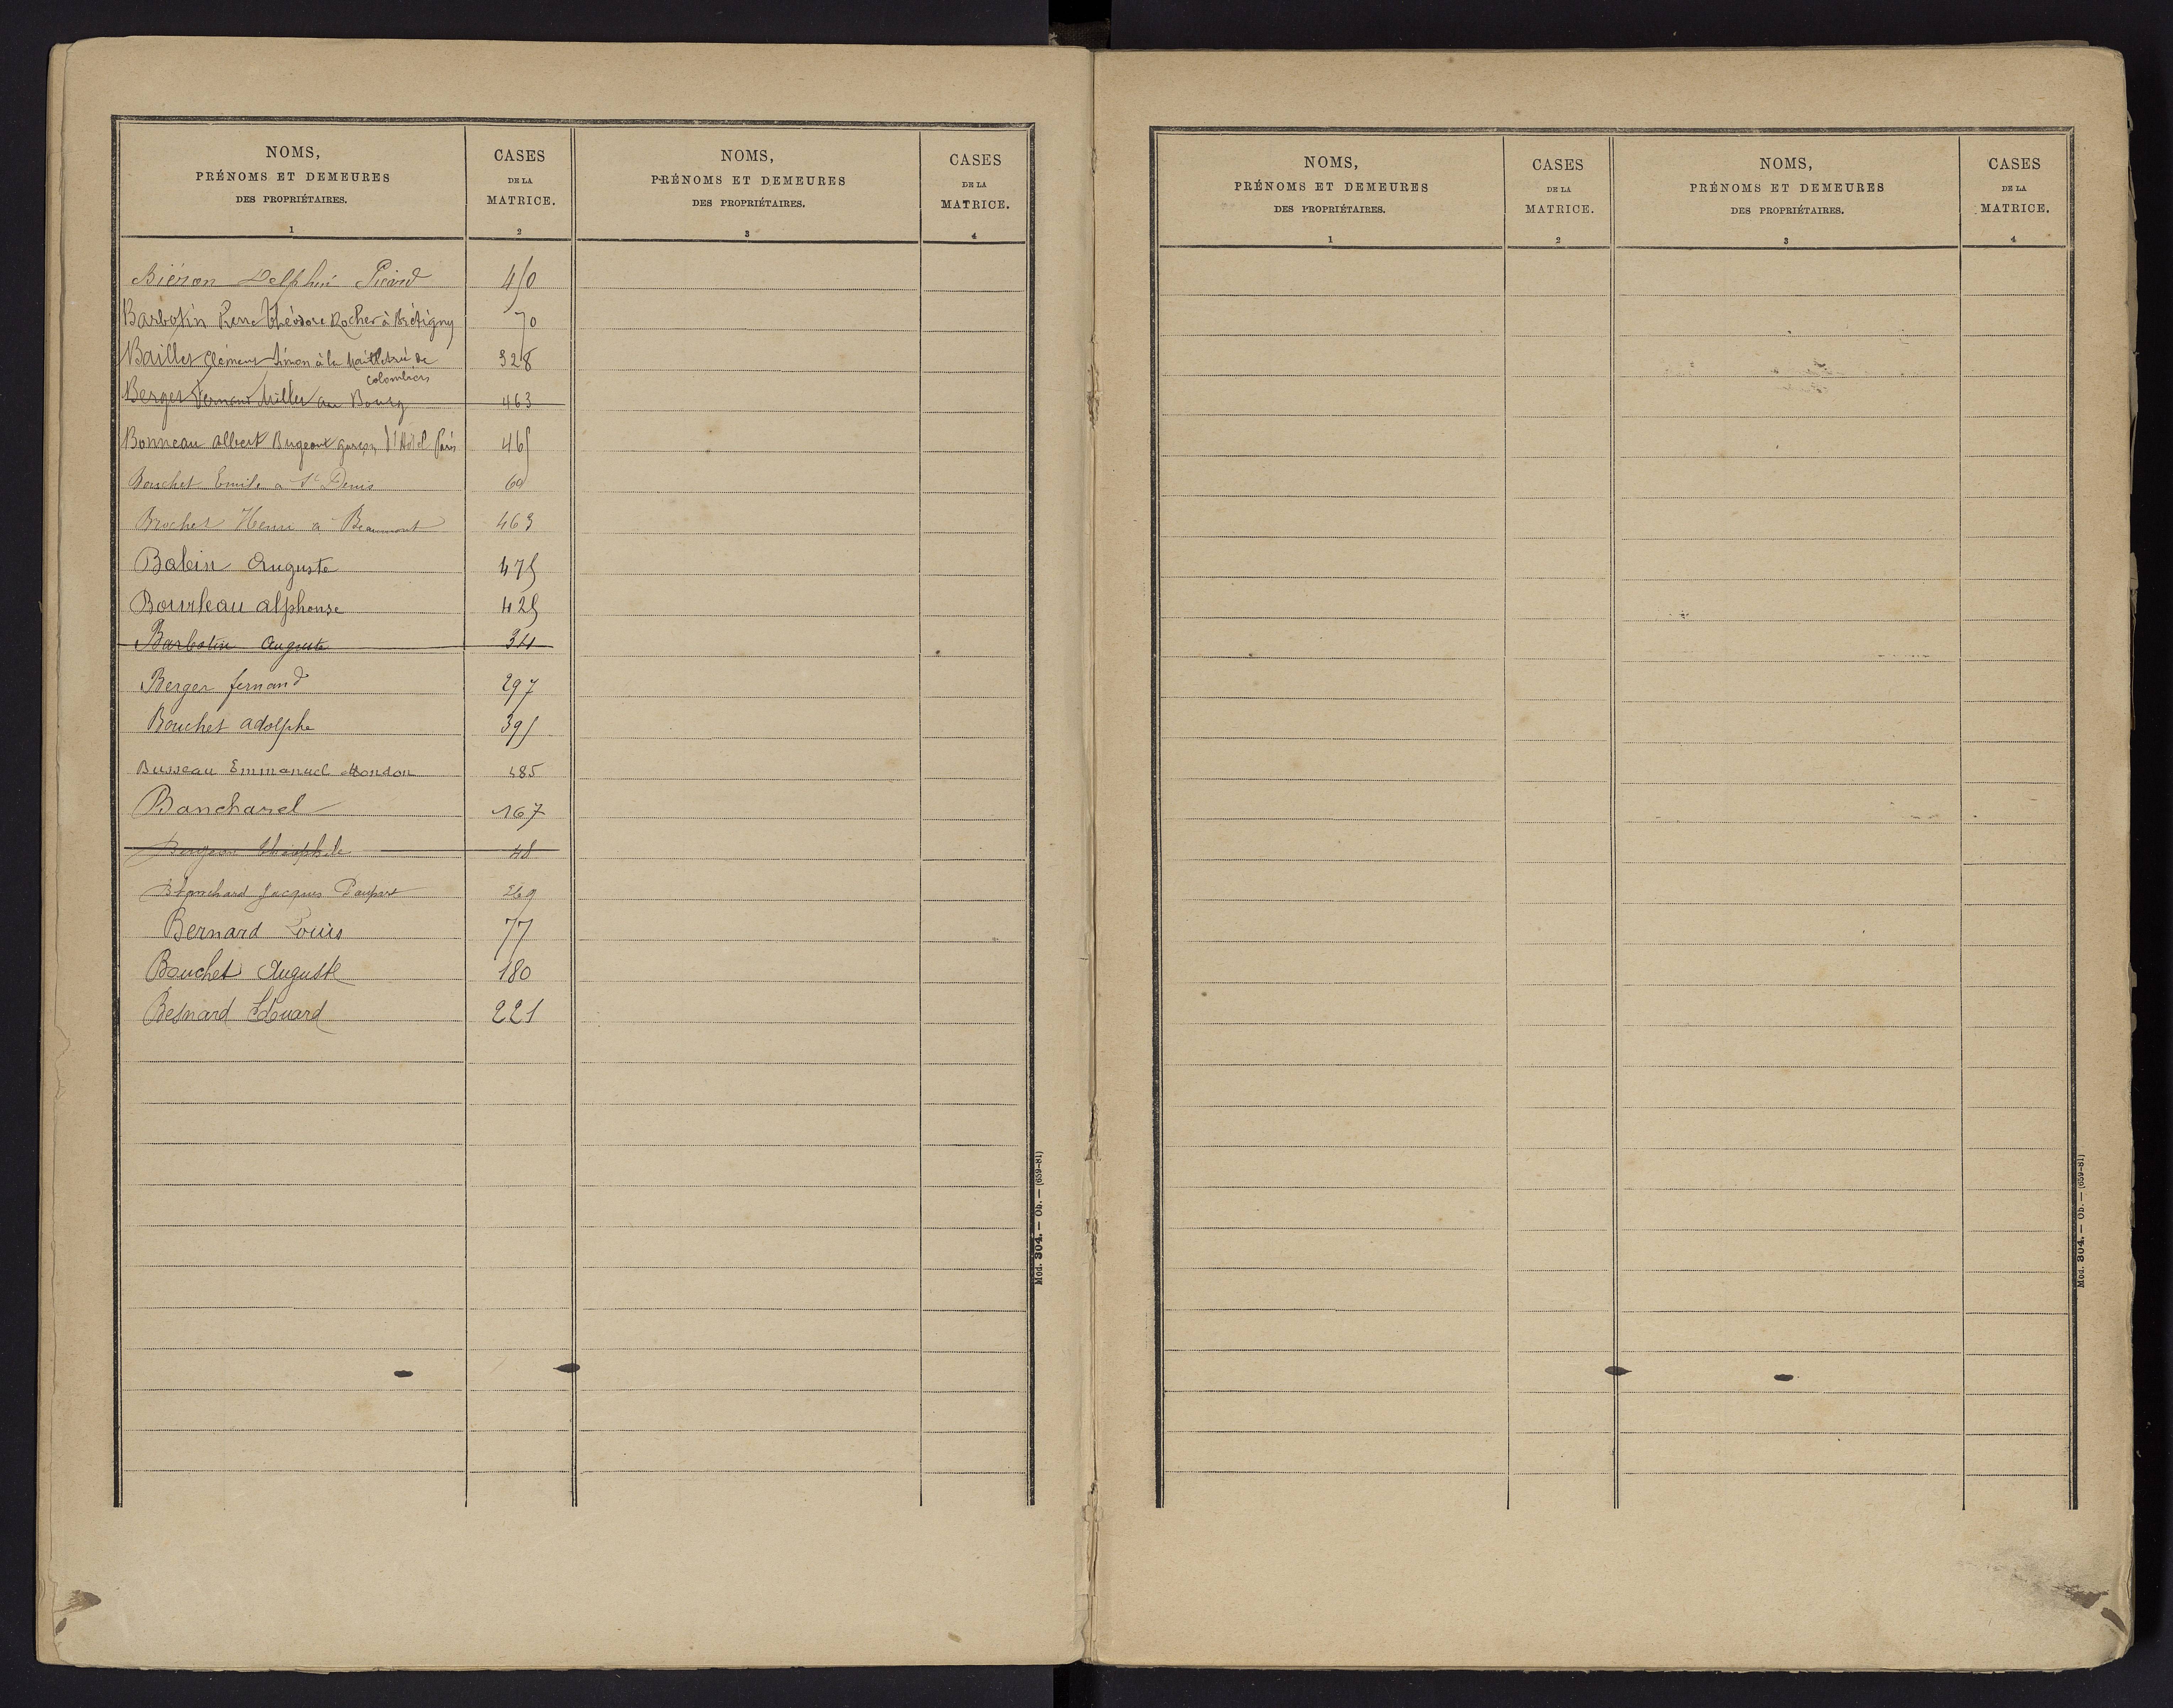 NOMS,
PRÉNOMS ET DEMEURES
DES PROPRIÉTAIRES.
1
CASES
DE LA
MATRICE.
2
NOMS,
PRÉNOMS ET DEMEURES
DES PROPRIÉTAIRES.
3
CASES
DE LA
MATRICE.
4
Biéron Delphin Picard 450
Barbotin Pierre Théodore Rocher à Brétigny 70
Bailler Clément Simon à la de 328
Colombiers
Berger Fernand Miller au Bourg 463
Bonneau Albert Bugeant garçon d'Hôtel Paris 465
Bouchet Emile a St Denis 60
Brochet Henri a Beaumont 463
Babin Auguste 475
Bourleau alphonse 425
Barbotin Auguste 34
Berger fernand 297
Bouchet adolphe 395
Busseau Emmanuel Mondon 485
Bancharel 167
Théophile 48
Blanchard Jacques 269
Bernard Louis 77
Bouchet Auguste 180
Besnard Edouard 221
Mod. 304. — Ob. — (659-81)
NOMS,
PRÉNOMS ET DEMEURES
DES PROPRIÉTAIRES.
1
CASES
DE LA
MATRICE.
2
NOMS,
PRÉNOMS ET DEMEURES
DES PROPRIÉTAIRES.
3
CASES
DE LA
MATRICE.
4
Mod. 304. — Ob. — (659-81)